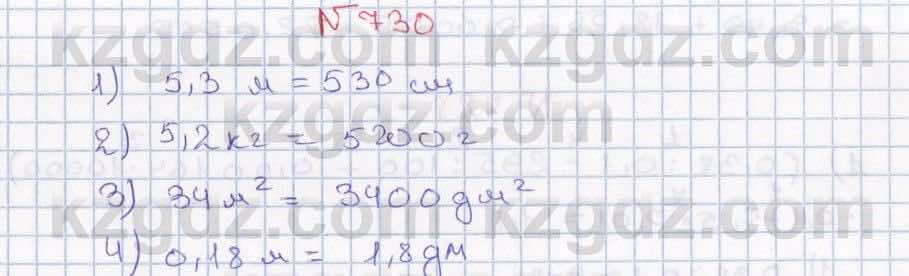 № 730
1) 5,3 м = 530 см
2) 5,2 кг = 5200 г
3) 34 м² = 3400 дм²
4) 0,18 м = 1,8 дм
kzgdz.com
kzgdz.com
kzgdz.com
kzgdz.com
kzgdz.com